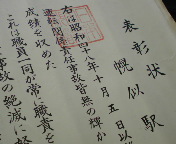 表彰状
幌似駅
右は昭和四十八年十月五日以
運転関係責任事故皆無の輝か
成績を収めた
これは職員一同が常に職責を
事故の絶滅に